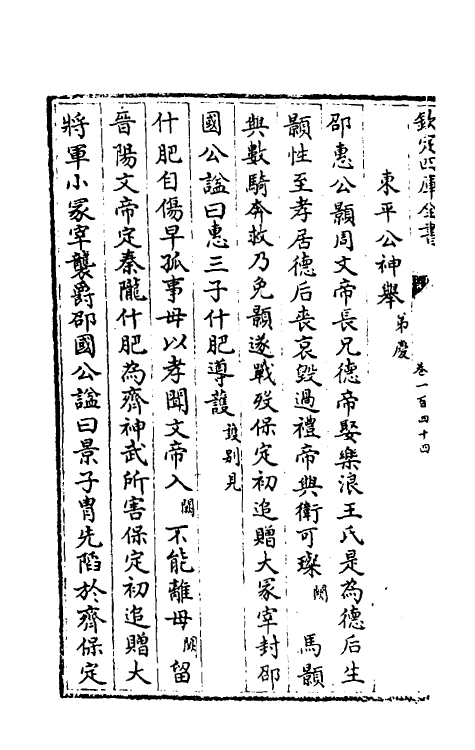 欽定四庫全書
卷一百四十四
東平公神舉弟慶
邵惠公顥周文帝長兄德帝娶樂浪王氏是為德后生
顥性至孝居德后喪哀毀過禮帝與衛可瓌闕馬顥
與數騎奔救乃免顥遂戰歿保定初追贈大冢宰封邵
國公謚曰惠三子什肥導護護别見
什肥自傷早孤事母以孝聞文帝入闕不能離母闕留
晉陽文帝定秦隴什肥為齊神武所害保定初追贈大
將軍小冢宰襲爵邵國公謚曰景子胄先陷於齊保定